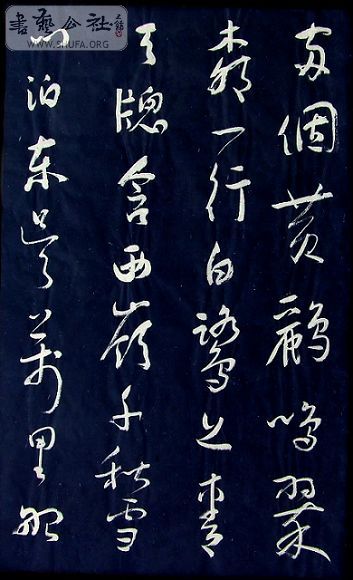 两個黄鸝鳴翠
柳一行白鷺上青
天牕含西嶺千秋雪
门泊东吳万里船
書藝公社
www.SHUFA.ORG